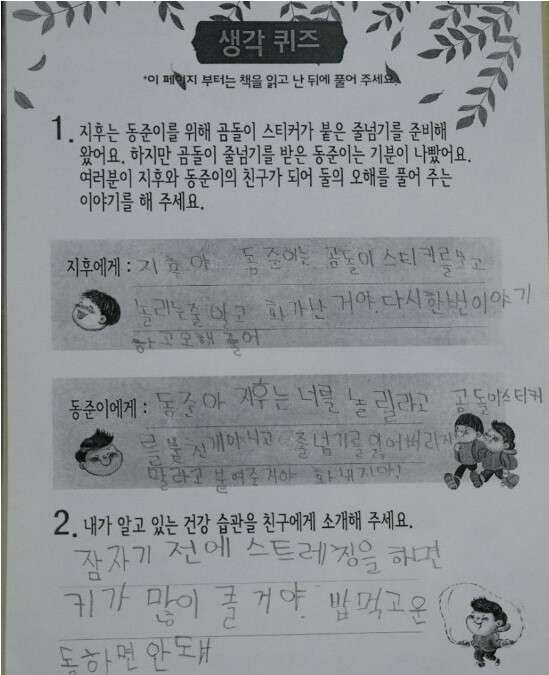 생각 퀴즈
*이 페이지 부터는 책을 읽고 난 뒤에 풀어 주세요.
1. 지후는 동준이를 위해 곰돌이 스티커가 붙은 줄넘기를 준비해
왔어요. 하지만 곰돌이 줄넘기를 받은 동준이는 기분이 나빴어요.
여러분이 지후와 동준이의 친구가 되어 둘의 오해를 풀어 주는
이야기를 해 주세요.
지후에게 : 지후야 동준이는 곰돌이 스티커를 보고
놀리는줄 알고 화가난 거야. 다시한번이야기
하고오해 풀어
동준이에게 : 동준아 지후는 너를 놀릴라고 곰돌이스티커
를붙인게아니고 줄넘기를 잃어버리지
말라고 붙여준거야 화내지마!
2. 내가 알고 있는 건강 습관을 친구에게 소개해 주세요.
잠자기 전에 스트레징을 하면
키가 많이 클 거야. 밥먹고 운
동하면 안돼